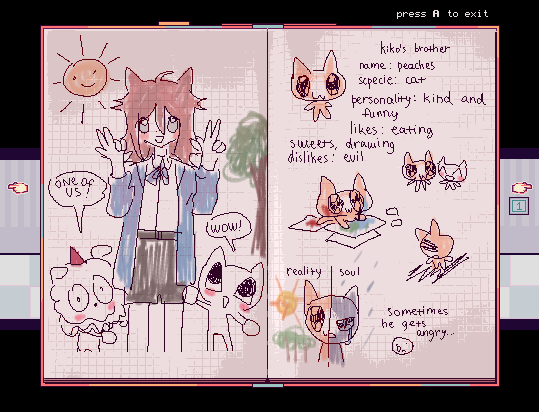 press A to exit
ONE OF
US!
(WOW!
kiko's brother
name: peaches
scpecie: cat
personality: kind and
funny
likes: eating
sweets, drawing
dislikes: evil
reality
soul
sometimes
he gets
angry...
1